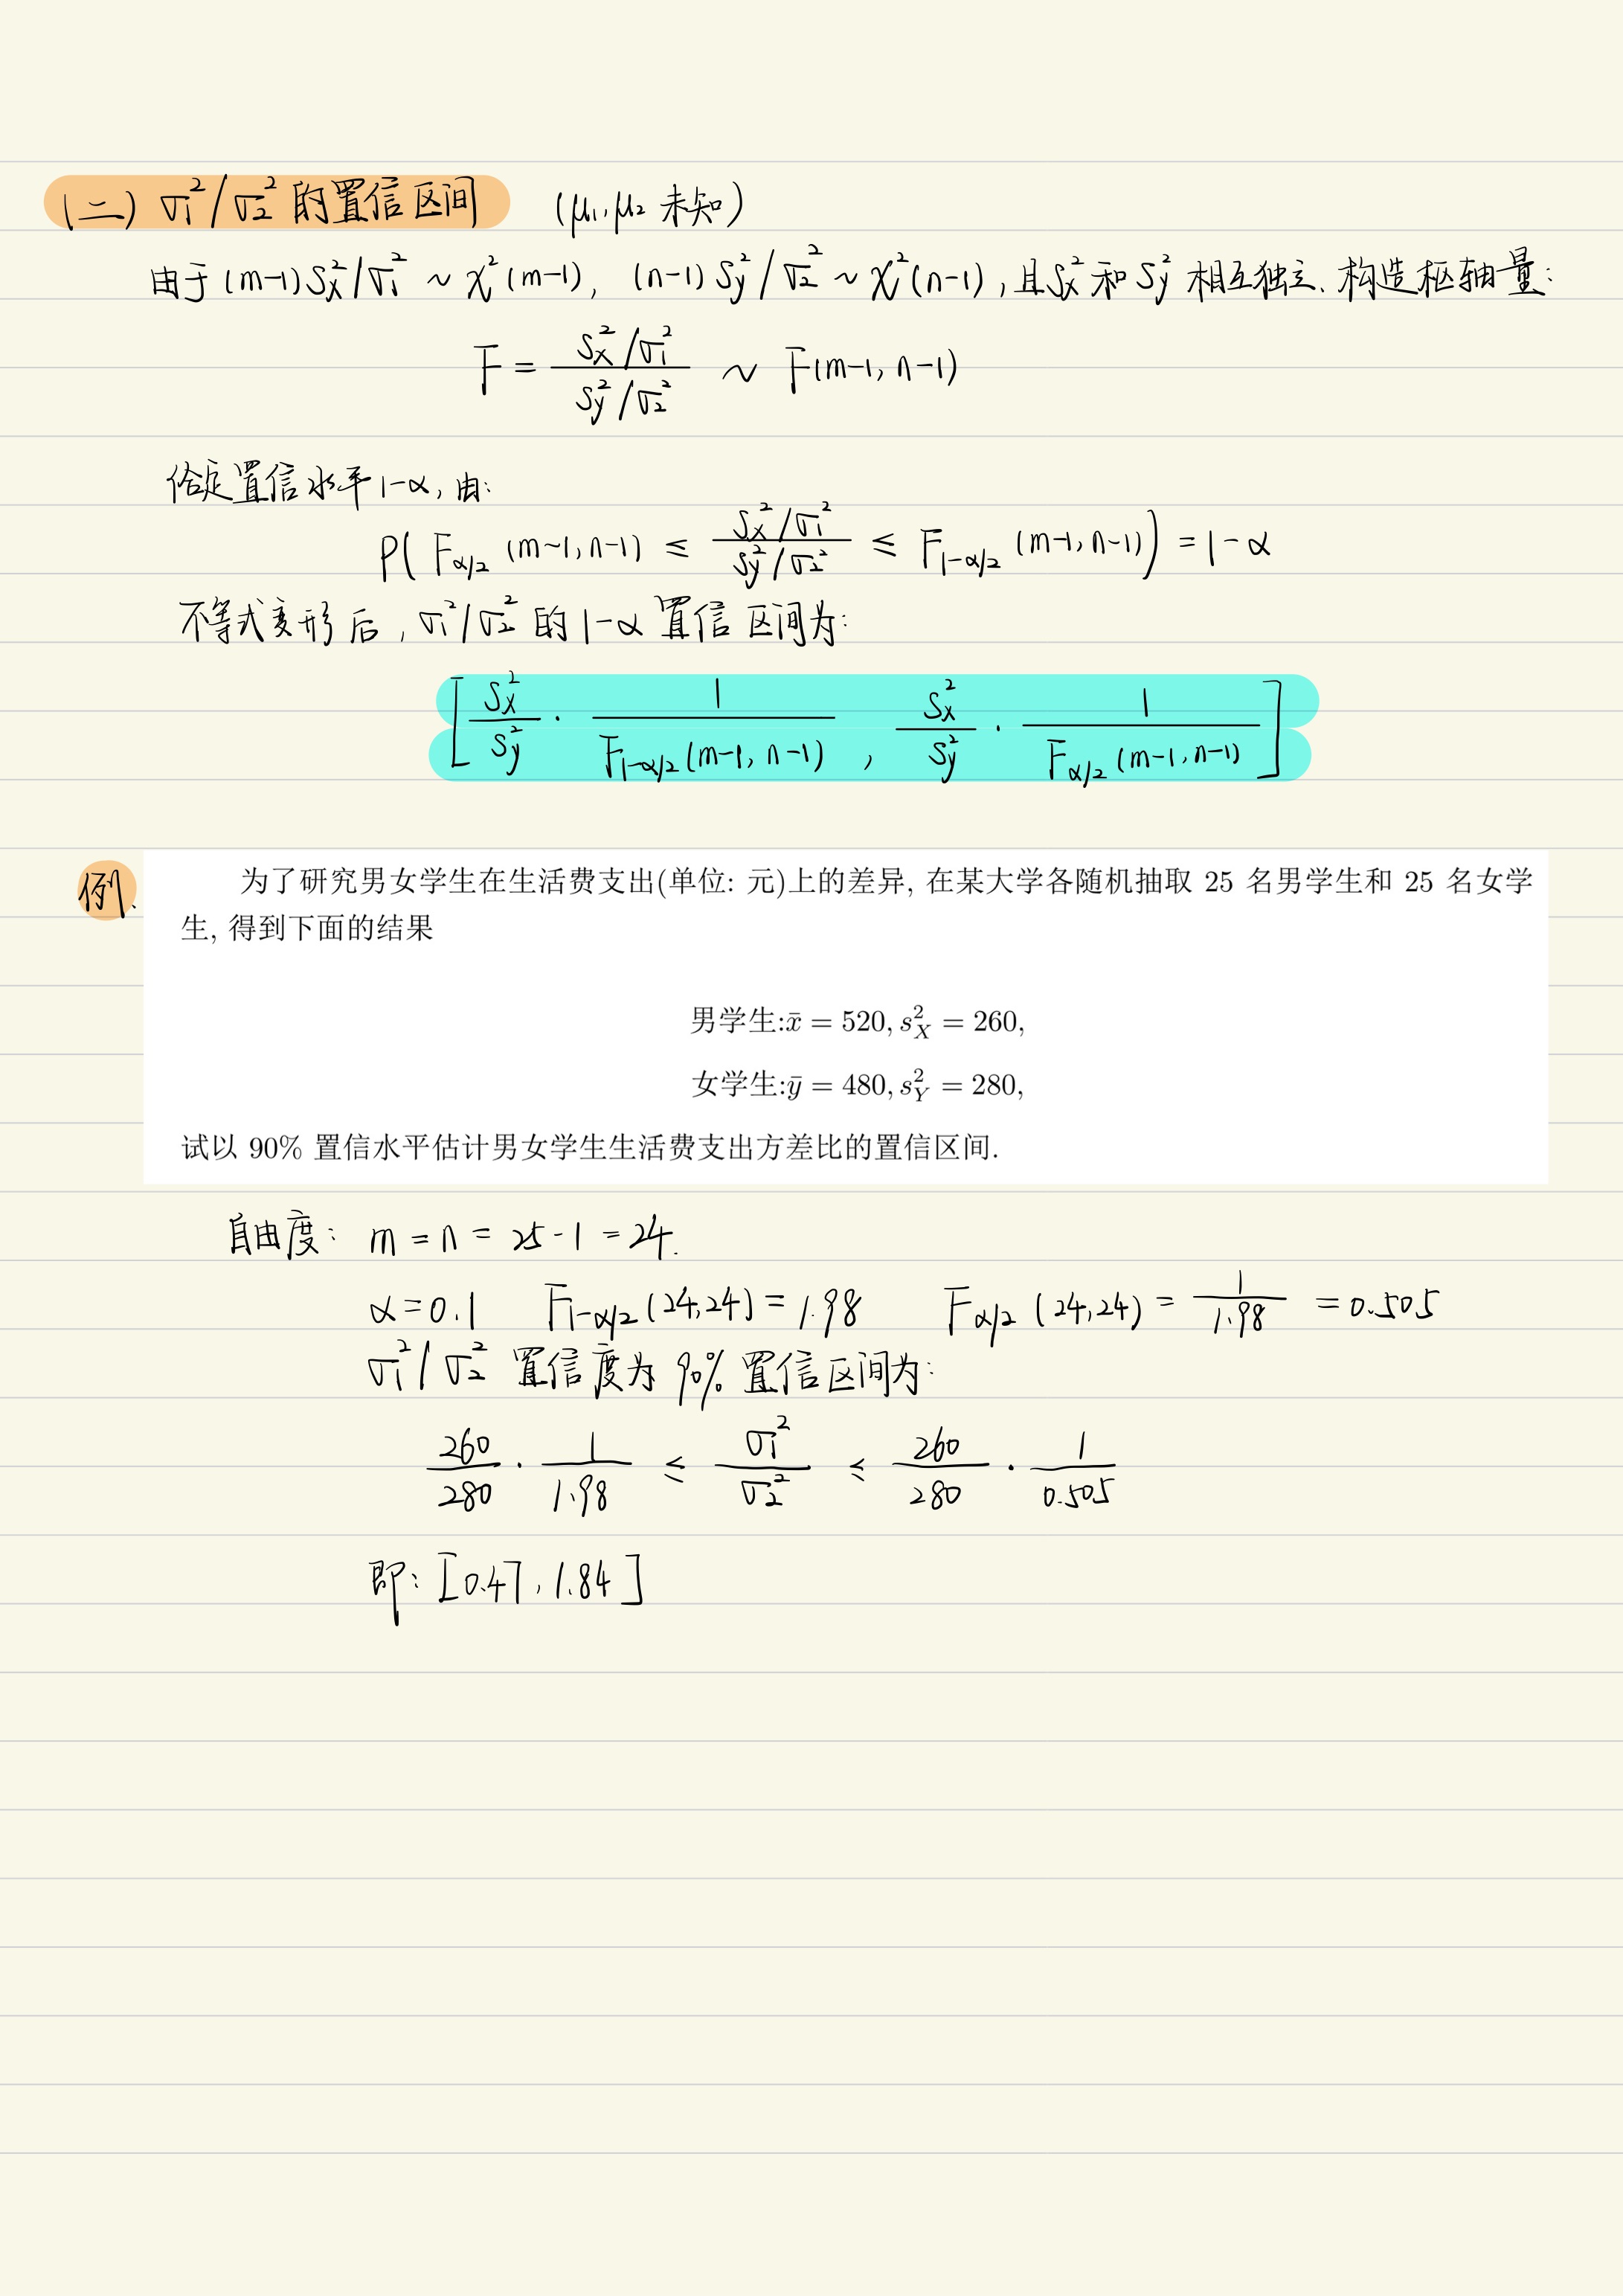 (二) σ₁²/σ₂² 的置信区间 (μ₁,μ₂ 未知)
由于 (m-1)Sx²/σ₁² ~ χ²(m-1), (n-1)Sy²/σ₂² ~ χ²(n-1), 且Sx² 和 Sy² 相互独立、构造枢轴量:
F = (Sx²/σ₁²)/(Sy²/σ₂²) ~ F(m-1, n-1)
给定置信水平 1-α, 由:
P( F_{α/2} (m-1, n-1) ≤ (Sx²/σ₁²)/(Sy²/σ₂²) ≤ F_{1-α/2} (m-1, n-1) ) = 1-α
不等式变形后, σ₁²/σ₂² 的 1-α 置信区间为:
[ Sx²/Sy² · 1/F_{1-α/2}(m-1, n-1) , Sx²/Sy² · 1/F_{α/2}(m-1, n-1) ]
例.
为了研究男女学生在生活费支出(单位: 元)上的差异, 在某大学各随机抽取 25 名男学生和 25 名女学
生, 得到下面的结果
男学生:x̄ = 520, s²_X = 260,
女学生:ȳ = 480, s²_Y = 280,
试以 90% 置信水平估计男女学生生活费支出方差比的置信区间.
自由度: m = n = 25-1 = 24.
α = 0.1 F_{1-α/2}(24,24) = 1.98 F_{α/2} (24,24) = 1/1.98 = 0.505
σ₁²/σ₂² 置信度为 90% 置信区间为:
260/280 · 1/1.98 ≤ σ₁²/σ₂² ≤ 260/280 · 1/0.505
即: [0.47, 1.84]